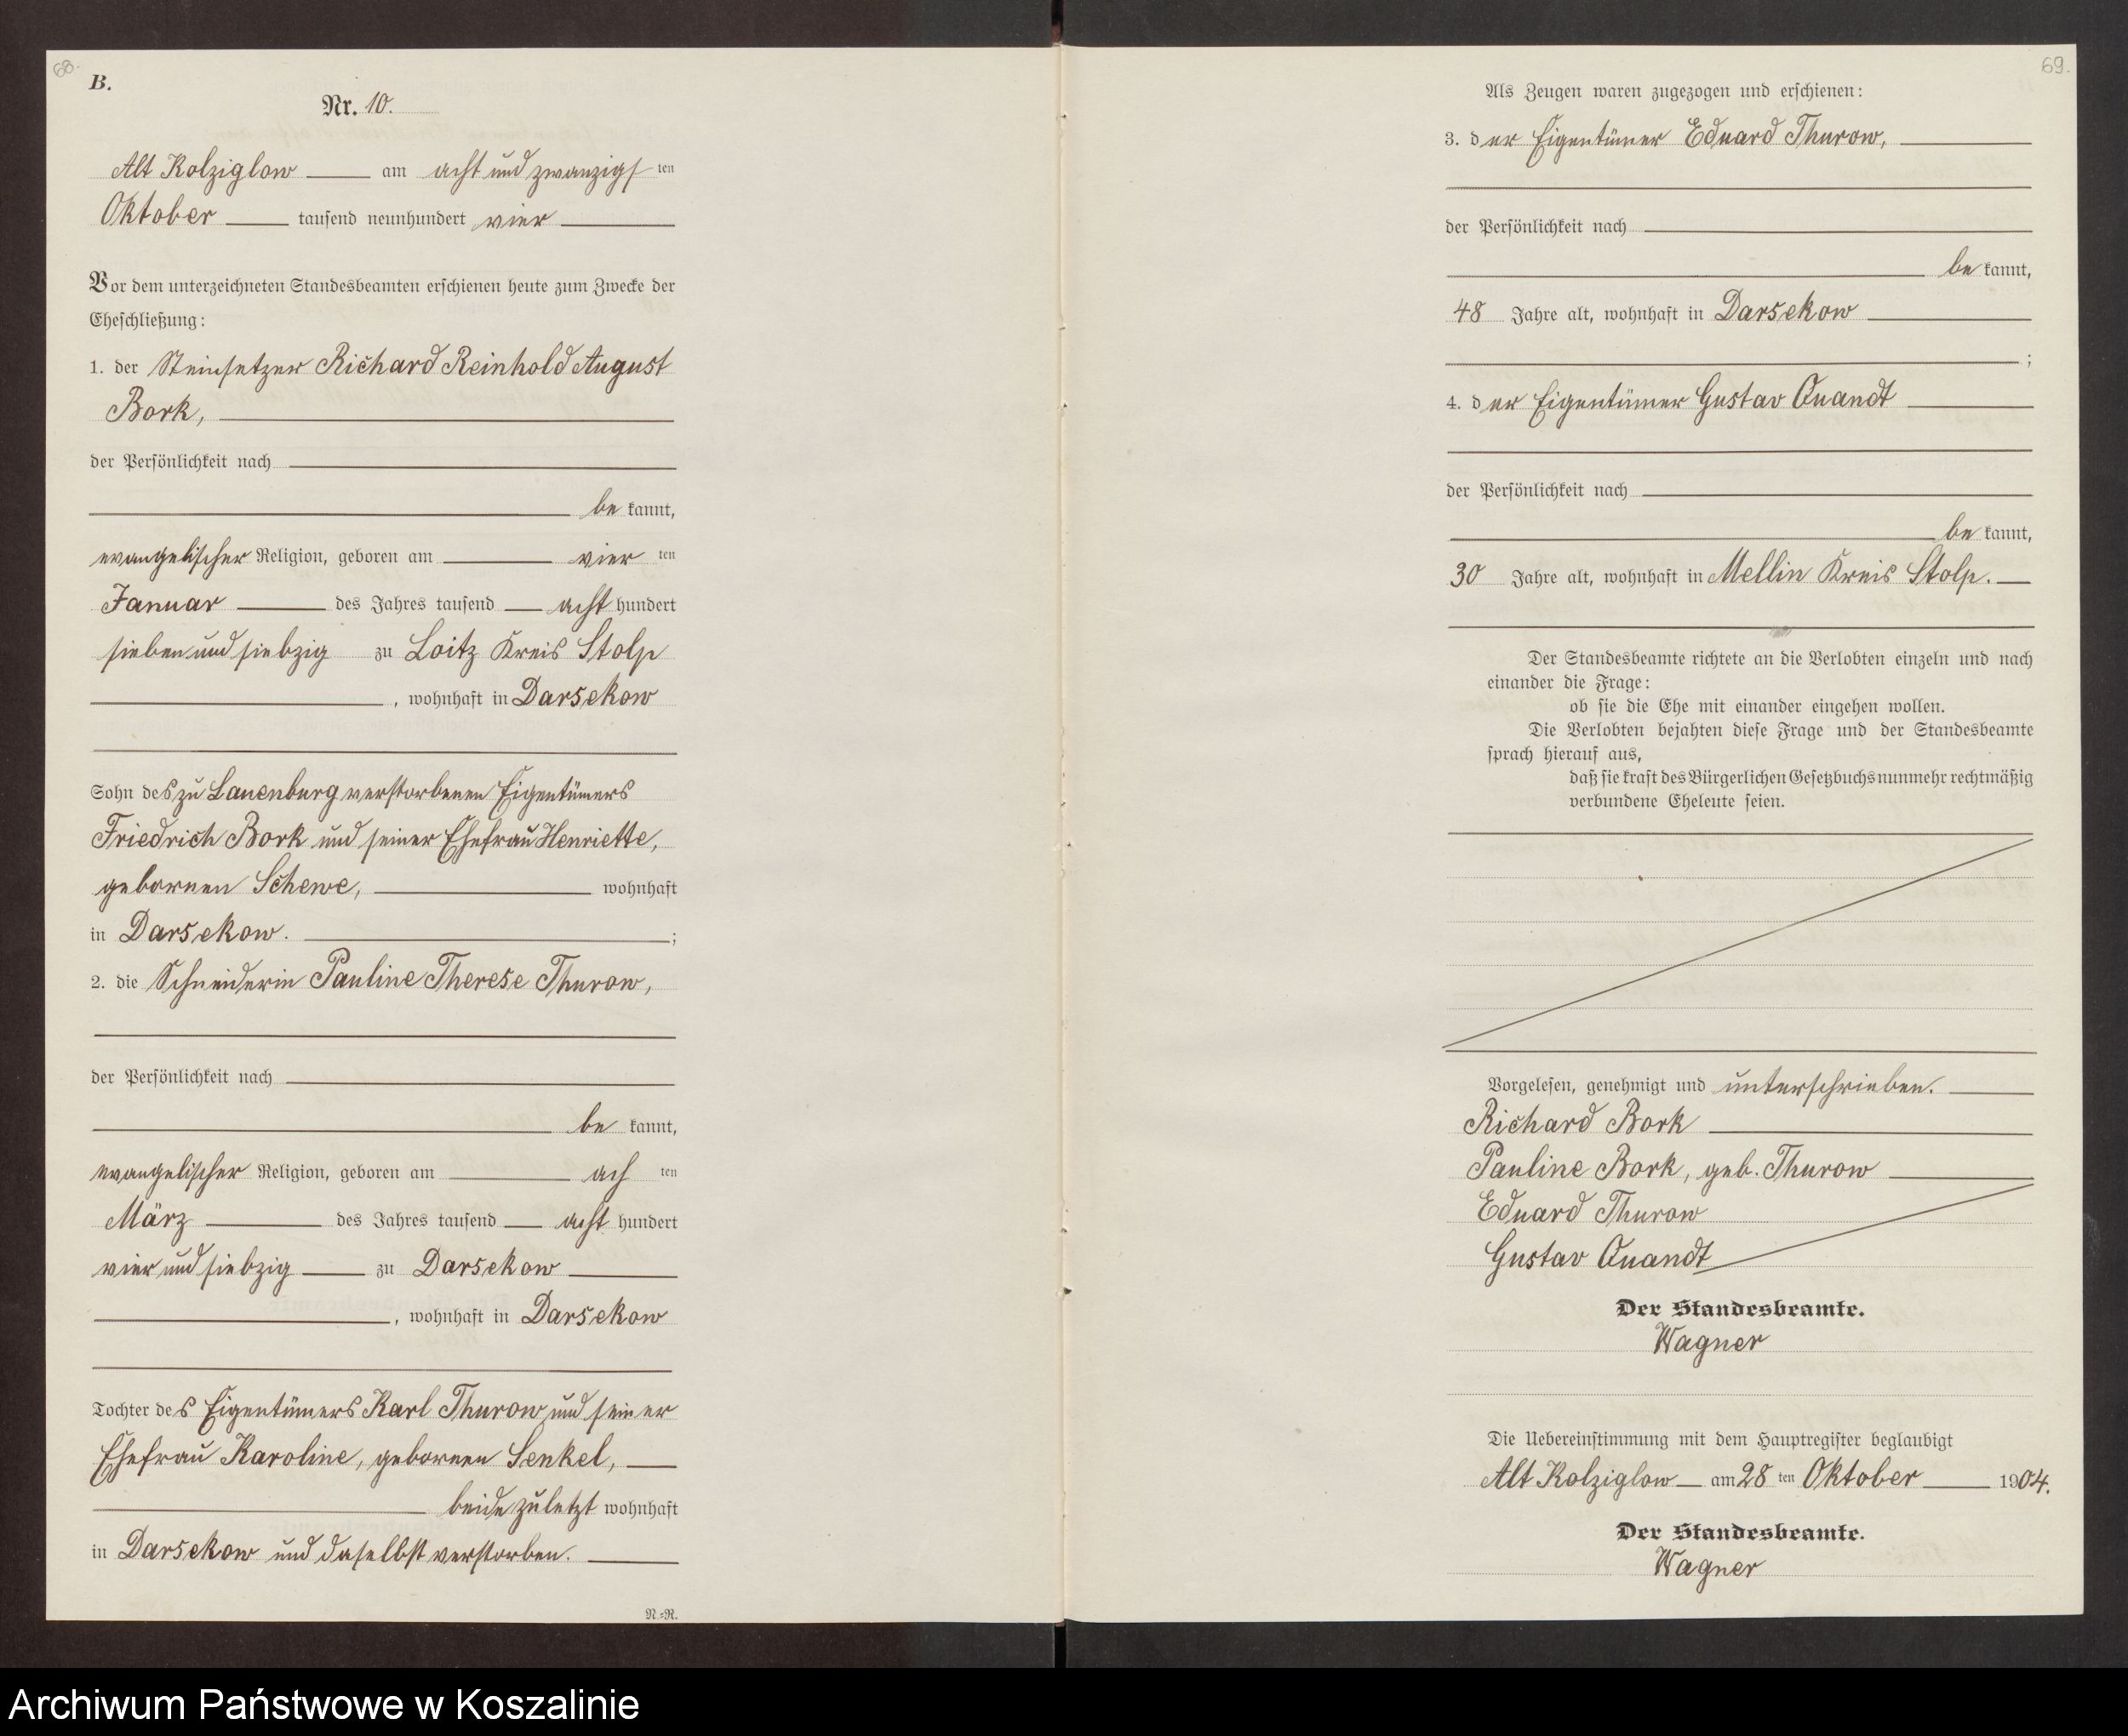 68.
B.
Nr. 10.
Alt Kolziglow am acht und zwanzigsten
Oktober tausend neunhundert vier
Vor dem unterzeichneten Standesbeamten erschienen heute zum Zwecke der
Eheschließung:
1. der Steinsetzer Richard Reinhold August
Bork,
der Persönlichkeit nach
be kannt,
evangelischer Religion, geboren am vier ten
Januar des Jahres tausend acht hundert
sieben und siebzig zu Loitz Kreis Stolp
, wohnhaft in Darsekow
Sohn des zu Lauenburg verstorbenen Eigentümers
Friedrich Bork und seiner Ehefrau Henriette,
gebornen Schewe, wohnhaft
in Darsekow. ;
2. die Schneiderin Pauline Therese Thurow,
der Persönlichkeit nach
be kannt,
evangelischer Religion, geboren am ach ten
März des Jahres tausend acht hundert
vier und siebzig zu Darsekow
, wohnhaft in Darsekow
Tochter des Eigentümers Karl Thurow und seiner
Ehefrau Karoline, gebornen Senkel,
beide zuletzt wohnhaft
in Darsekow und daselbst verstorben.
N.=R.
69.
Als Zeugen waren zugezogen und erschienen:
3. der Eigentümer Eduard Thurow,
der Persönlichkeit nach
be kannt,
48 Jahre alt, wohnhaft in Darsekow
;
4. der Eigentümer Gustav Quandt
der Persönlichkeit nach
be kannt,
30 Jahre alt, wohnhaft in Mellin Kreis Stolp.
Der Standesbeamte richtete an die Verlobten einzeln und nach
einander die Frage:
ob sie die Ehe mit einander eingehen wollen.
Die Verlobten bejahten diese Frage und der Standesbeamte
sprach hierauf aus,
daß sie kraft des Bürgerlichen Gesetzbuchs nunmehr rechtmäßig
verbundene Eheleute seien.
Vorgelesen, genehmigt und unterschrieben.
Richard Bork
Pauline Bork, geb. Thurow
Eduard Thurow
Gustav Quandt
Der Standesbeamte.
Wagner
Die Uebereinstimmung mit dem Hauptregister beglaubigt
Alt Kolziglow am 28 ten Oktober 1904.
Der Standesbeamte.
Wagner
Archiwum Państwowe w Koszalinie